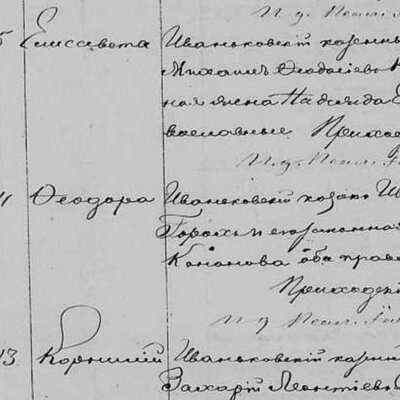 И. д. Псал.
5 Елисавета Иваньковскій казенны
Михаилъ Ѳеодосіевъ
ная жена Надежда
вославные Приход
И. д. Псал.
11 Ѳеодора Иваньковскій козакъ
Горохъ и его законна
Кононова оба право
Приходскі
И. д. Псал.
13 Корнилій Иваньковскій казен
Захарій Леонтіевъ